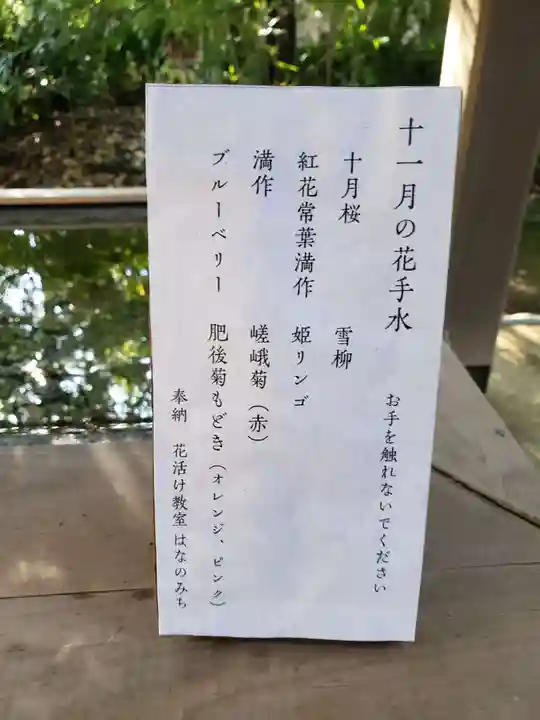 十一月の花手水
お手を触れないでください
十月桜　雪柳
紅花常葉満作　姫リンゴ
満作　嵯峨菊（赤）
ブルーベリー　肥後菊もどき（オレンジ、ピンク）
奉納　花活け教室はなのみち